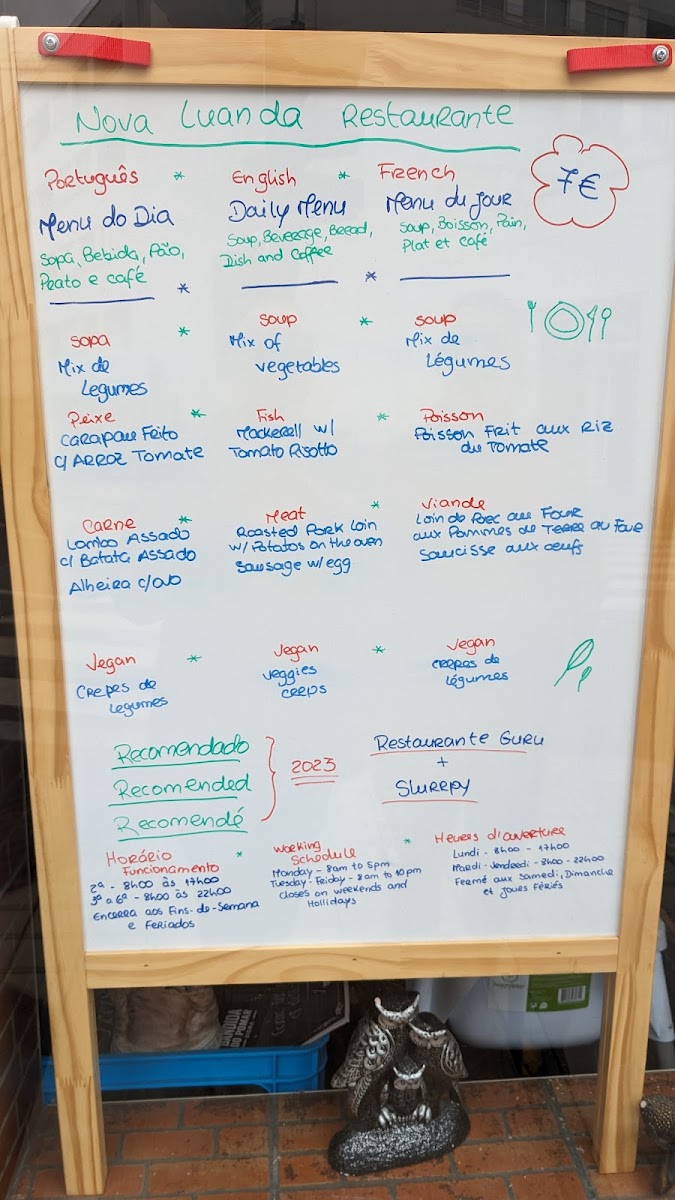 Nova Luanda Restaurante
7€
Português * English * French
Menu do Dia
Sopa, Bebida, Pão,
Prato e café
Daily Menu
Soup, Beverage, Bread,
Dish and Coffee
Menu du Jour
Soup, Boisson, Pain,
Plat et café
*
*
Sopa
Mix de
Legumes
*
Soup
Mix of
vegetables
*
Soup
Mix de
Légumes
Peixe
Carapau Feito
c/ Arroz Tomate
*
Fish
Mackerell w/
Tomato Risotto
*
Poisson
Poisson Frit aux Riz
du Tomate
Carne
Lombo Assado
c/ Batata Assado
Alheira c/ovo
*
Meat
Roasted Pork Loin
w/ Potatos on the oven
Sausage w/egg
*
Viande
Loin de Porc au Four
aux Pommes de Terre au Four
Saucisse aux oeufs
Vegan
Crepes de
Legumes
*
Vegan
Veggies
Creps
*
Vegan
Crepes de
légumes
Recomendado
Recomended
Recomendé
2023
Restaurante Guru
+
Slurrpy
Horário
Funcionamento
2ª - 8h00 às 17h00
3ª a 6ª - 8h00 às 22h00
Encerra aos Fins-de-Semana
e Feriados
*
Working
Schedule
Monday - 8am to 5pm
Tuesday - Friday - 8am to 10pm
Closes on weekends and
Hollidays
*
Heures d'ouverture
Lundi - 8h00 - 17h00
Mardi - Vendredi - 8h00 - 22h00
Fermé aux Samedi, Dimanche
et Joues Fériés